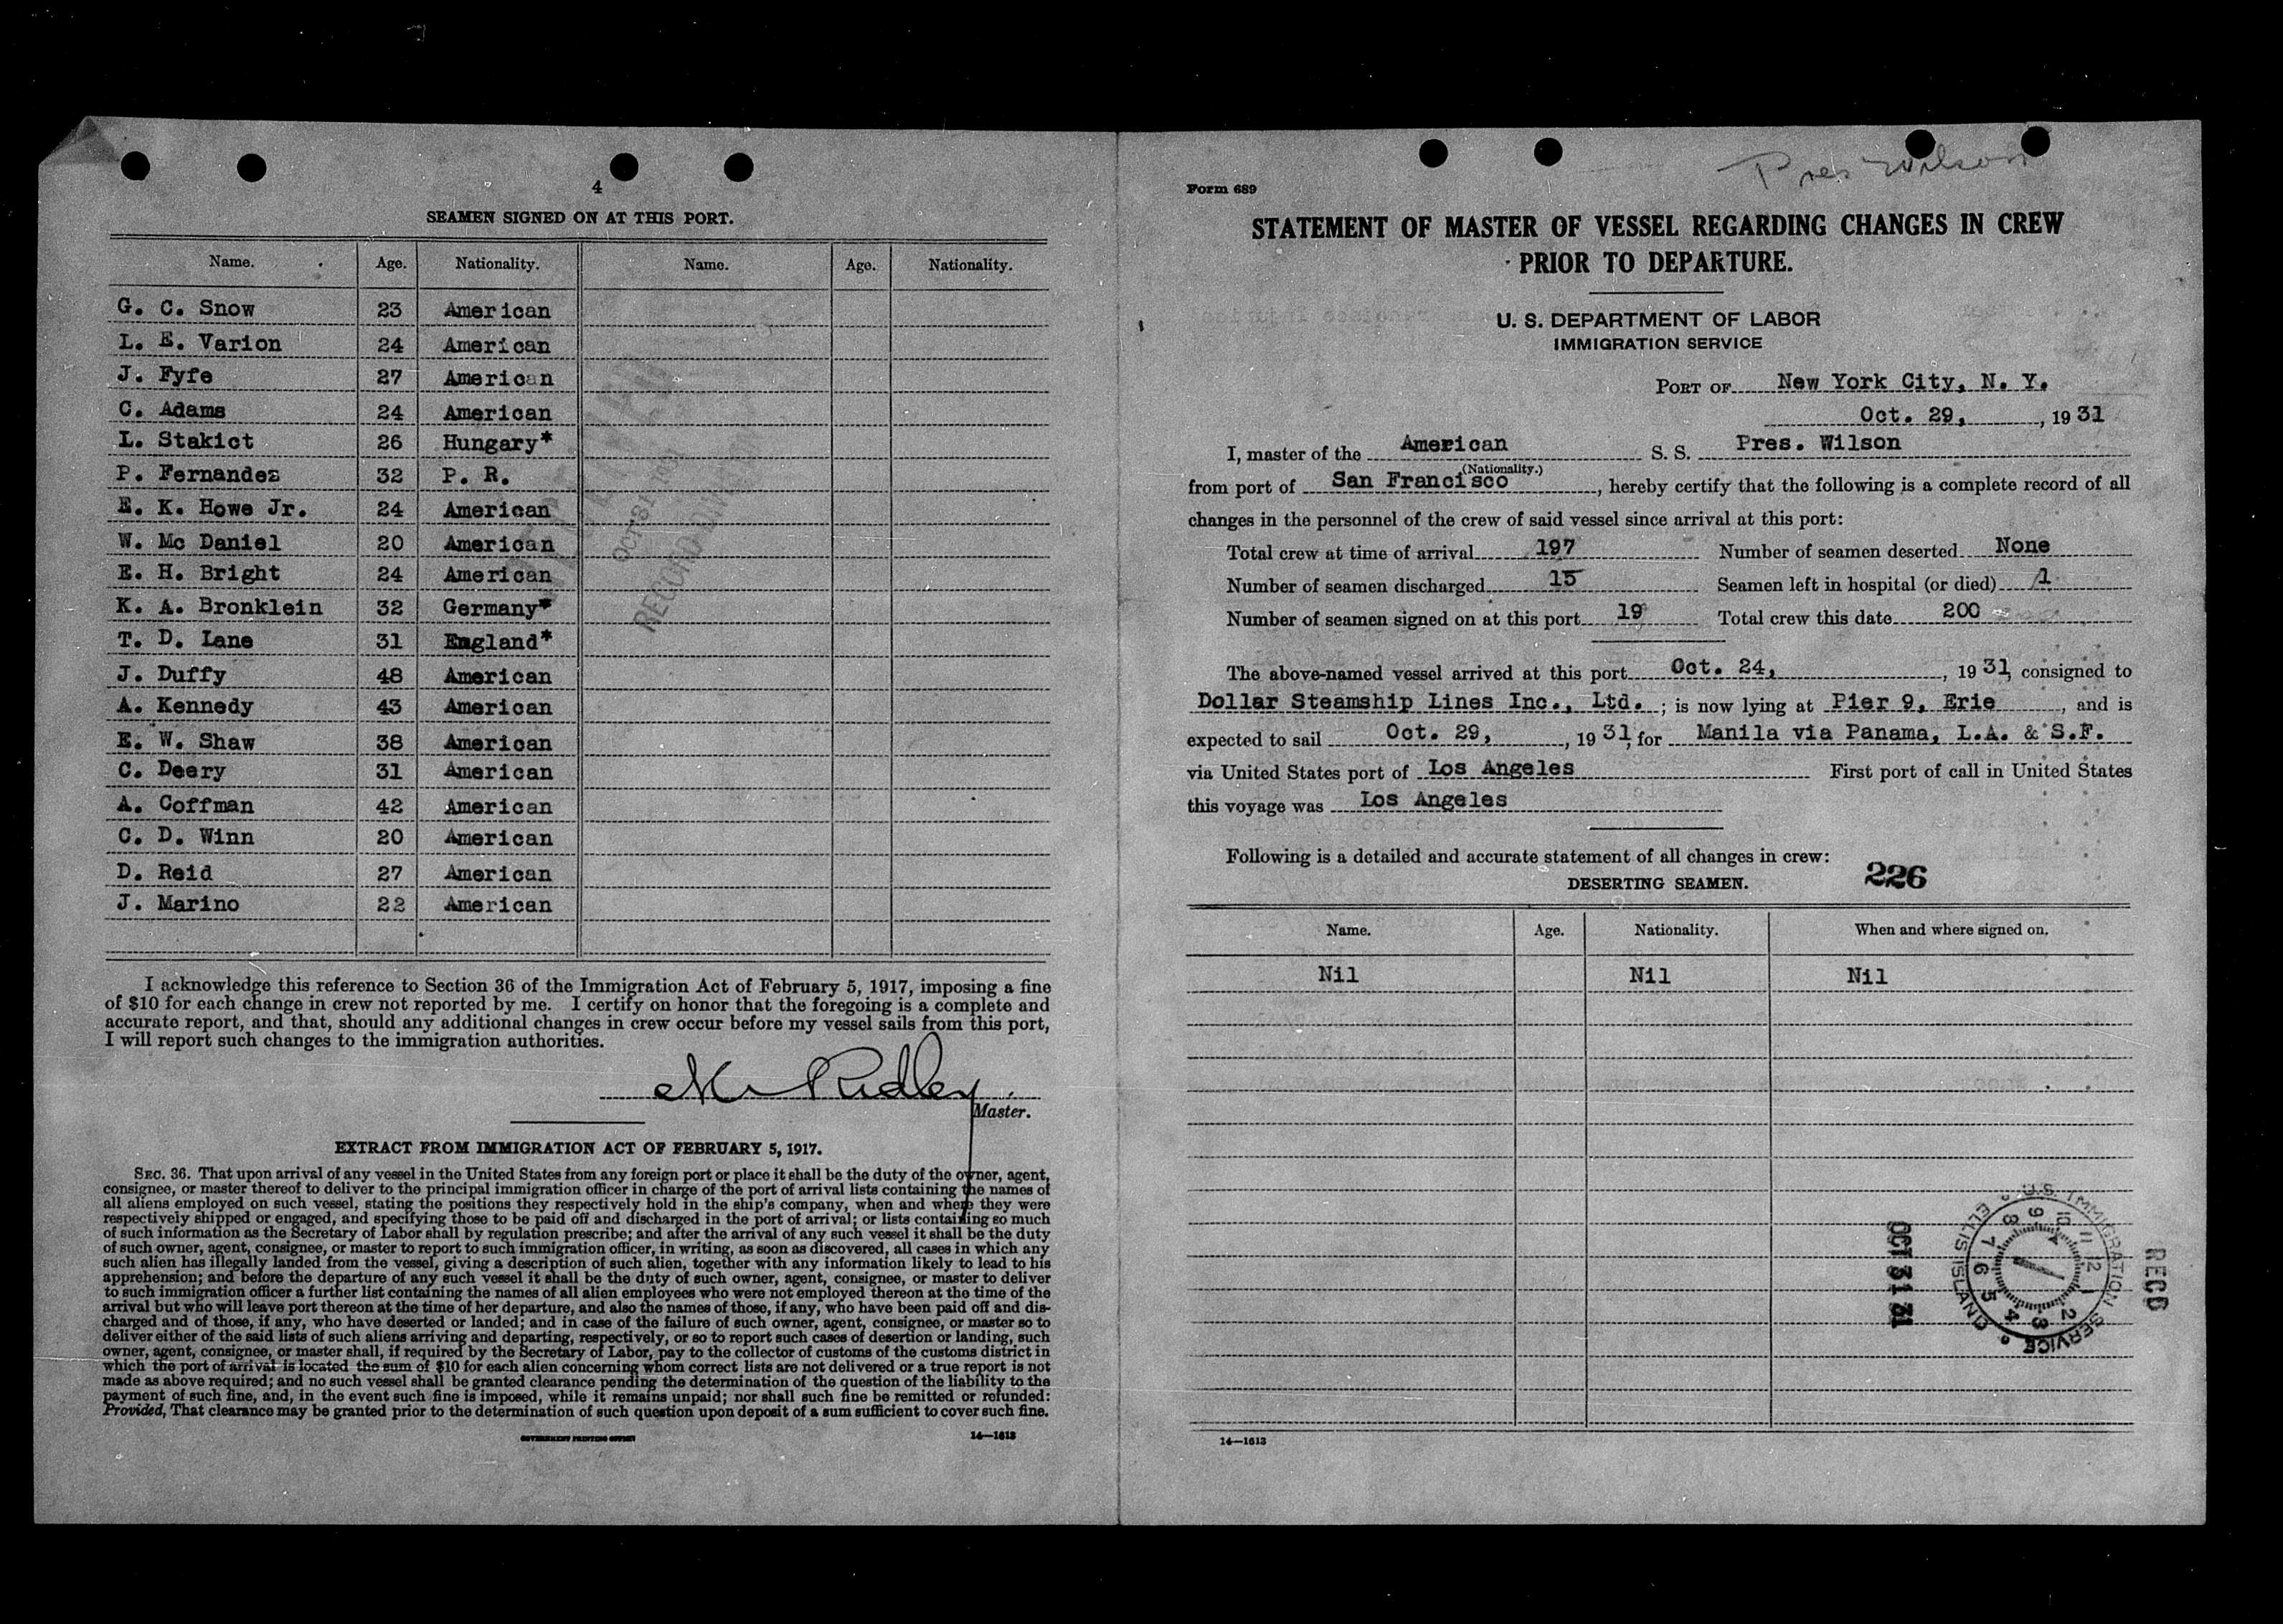 4
SEAMEN SIGNED ON AT THIS PORT.
Name. Age. Nationality. Name. Age. Nationality.
G. C. Snow 23 American
L. E. Varion 24 American
J. Fyfe 27 American
C. Adams 24 American
L. Stakict 26 Hungary*
P. Fernandez 32 P. R.
E. K. Howe Jr. 24 American
W. Mc Daniel 20 American
E. H. Bright 24 American
K. A. Bronklein 32 Germany*
T. D. Lane 31 England*
J. Duffy 48 American
A. Kennedy 43 American
E. W. Shaw 38 American
C. Deery 31 American
A. Coffman 42 American
C. D. Winn 20 American
D. Reid 27 American
J. Marino 22 American
OCT 31 1931
RECORD DIVISION
I acknowledge this reference to Section 36 of the Immigration Act of February 5, 1917, imposing a fine
of $10 for each change in crew not reported by me. I certify on honor that the foregoing is a complete and
accurate report, and that, should any additional changes in crew occur before my vessel sails from this port,
I will report such changes to the immigration authorities.
Ridley
Master.
EXTRACT FROM IMMIGRATION ACT OF FEBRUARY 5, 1917.
SEC. 36. That upon arrival of any vessel in the United States from any foreign port or place it shall be the duty of the owner, agent,
consignee, or master thereof to deliver to the principal immigration officer in charge of the port of arrival lists containing the names of
all aliens employed on such vessel, stating the positions they respectively hold in the ship's company, when and where they were
respectively shipped or engaged, and specifying those to be paid off and discharged in the port of arrival; or lists containing so much
of such information as the Secretary of Labor shall by regulation prescribe; and after the arrival of any such vessel it shall be the duty
of such owner, agent, consignee, or master to report to such immigration officer, in writing, as soon as discovered, all cases in which any
such alien has illegally landed from the vessel, giving a description of such alien, together with any information likely to lead to his
apprehension; and before the departure of any such vessel it shall be the duty of such owner, agent, consignee, or master to deliver
to such immigration officer a further list containing the names of all alien employees who were not employed thereon at the time of the
arrival but who will leave port thereon at the time of her departure, and also the names of those, if any, who have been paid off and dis-
charged and of those, if any, who have deserted or landed; and in case of the failure of such owner, agent, consignee, or master so to
deliver either of the said lists of such aliens arriving and departing, respectively, or so to report such cases of desertion or landing, such
owner, agent, consignee, or master shall, if required by the Secretary of Labor, pay to the collector of customs of the customs district in
which the port of arrival is located the sum of $10 for each alien concerning whom correct lists are not delivered or a true report is not
made as above required; and no such vessel shall be granted clearance pending the determination of the question of the liability to the
payment of such fine, and, in the event such fine is imposed, while it remains unpaid; nor shall such fine be remitted or refunded:
Provided, That clearance may be granted prior to the determination of such question upon deposit of a sum sufficient to cover such fine.
GOVERNMENT PRINTING OFFICE 14—1613
Pres Wilson
Form 689
STATEMENT OF MASTER OF VESSEL REGARDING CHANGES IN CREW
PRIOR TO DEPARTURE.
U. S. DEPARTMENT OF LABOR
IMMIGRATION SERVICE
PORT OF New York City, N. Y.
Oct. 29, , 19 31
I, master of the American S. S. Pres. Wilson
(Nationality.)
from port of San Francisco , hereby certify that the following is a complete record of all
changes in the personnel of the crew of said vessel since arrival at this port:
Total crew at time of arrival 197 Number of seamen deserted None
Number of seamen discharged 15 Seamen left in hospital (or died) 1
Number of seamen signed on at this port 19 Total crew this date 200
The above-named vessel arrived at this port Oct. 24, , 19 31, consigned to
Dollar Steamship Lines Inc., Ltd. ; is now lying at Pier 9, Erie , and is
expected to sail Oct. 29, , 19 31, for Manila via Panama, L.A. & S.F.
via United States port of Los Angeles First port of call in United States
this voyage was Los Angeles
Following is a detailed and accurate statement of all changes in crew:
226
DESERTING SEAMEN.
Name. Age. Nationality. When and where signed on.
Nil Nil Nil
OCT 31 31
U.S. IMMIGRATION SERVICE
ELLIS ISLAND
1 2 3 4 5 6 7 8 9 10 11 12
RECD
14—1613